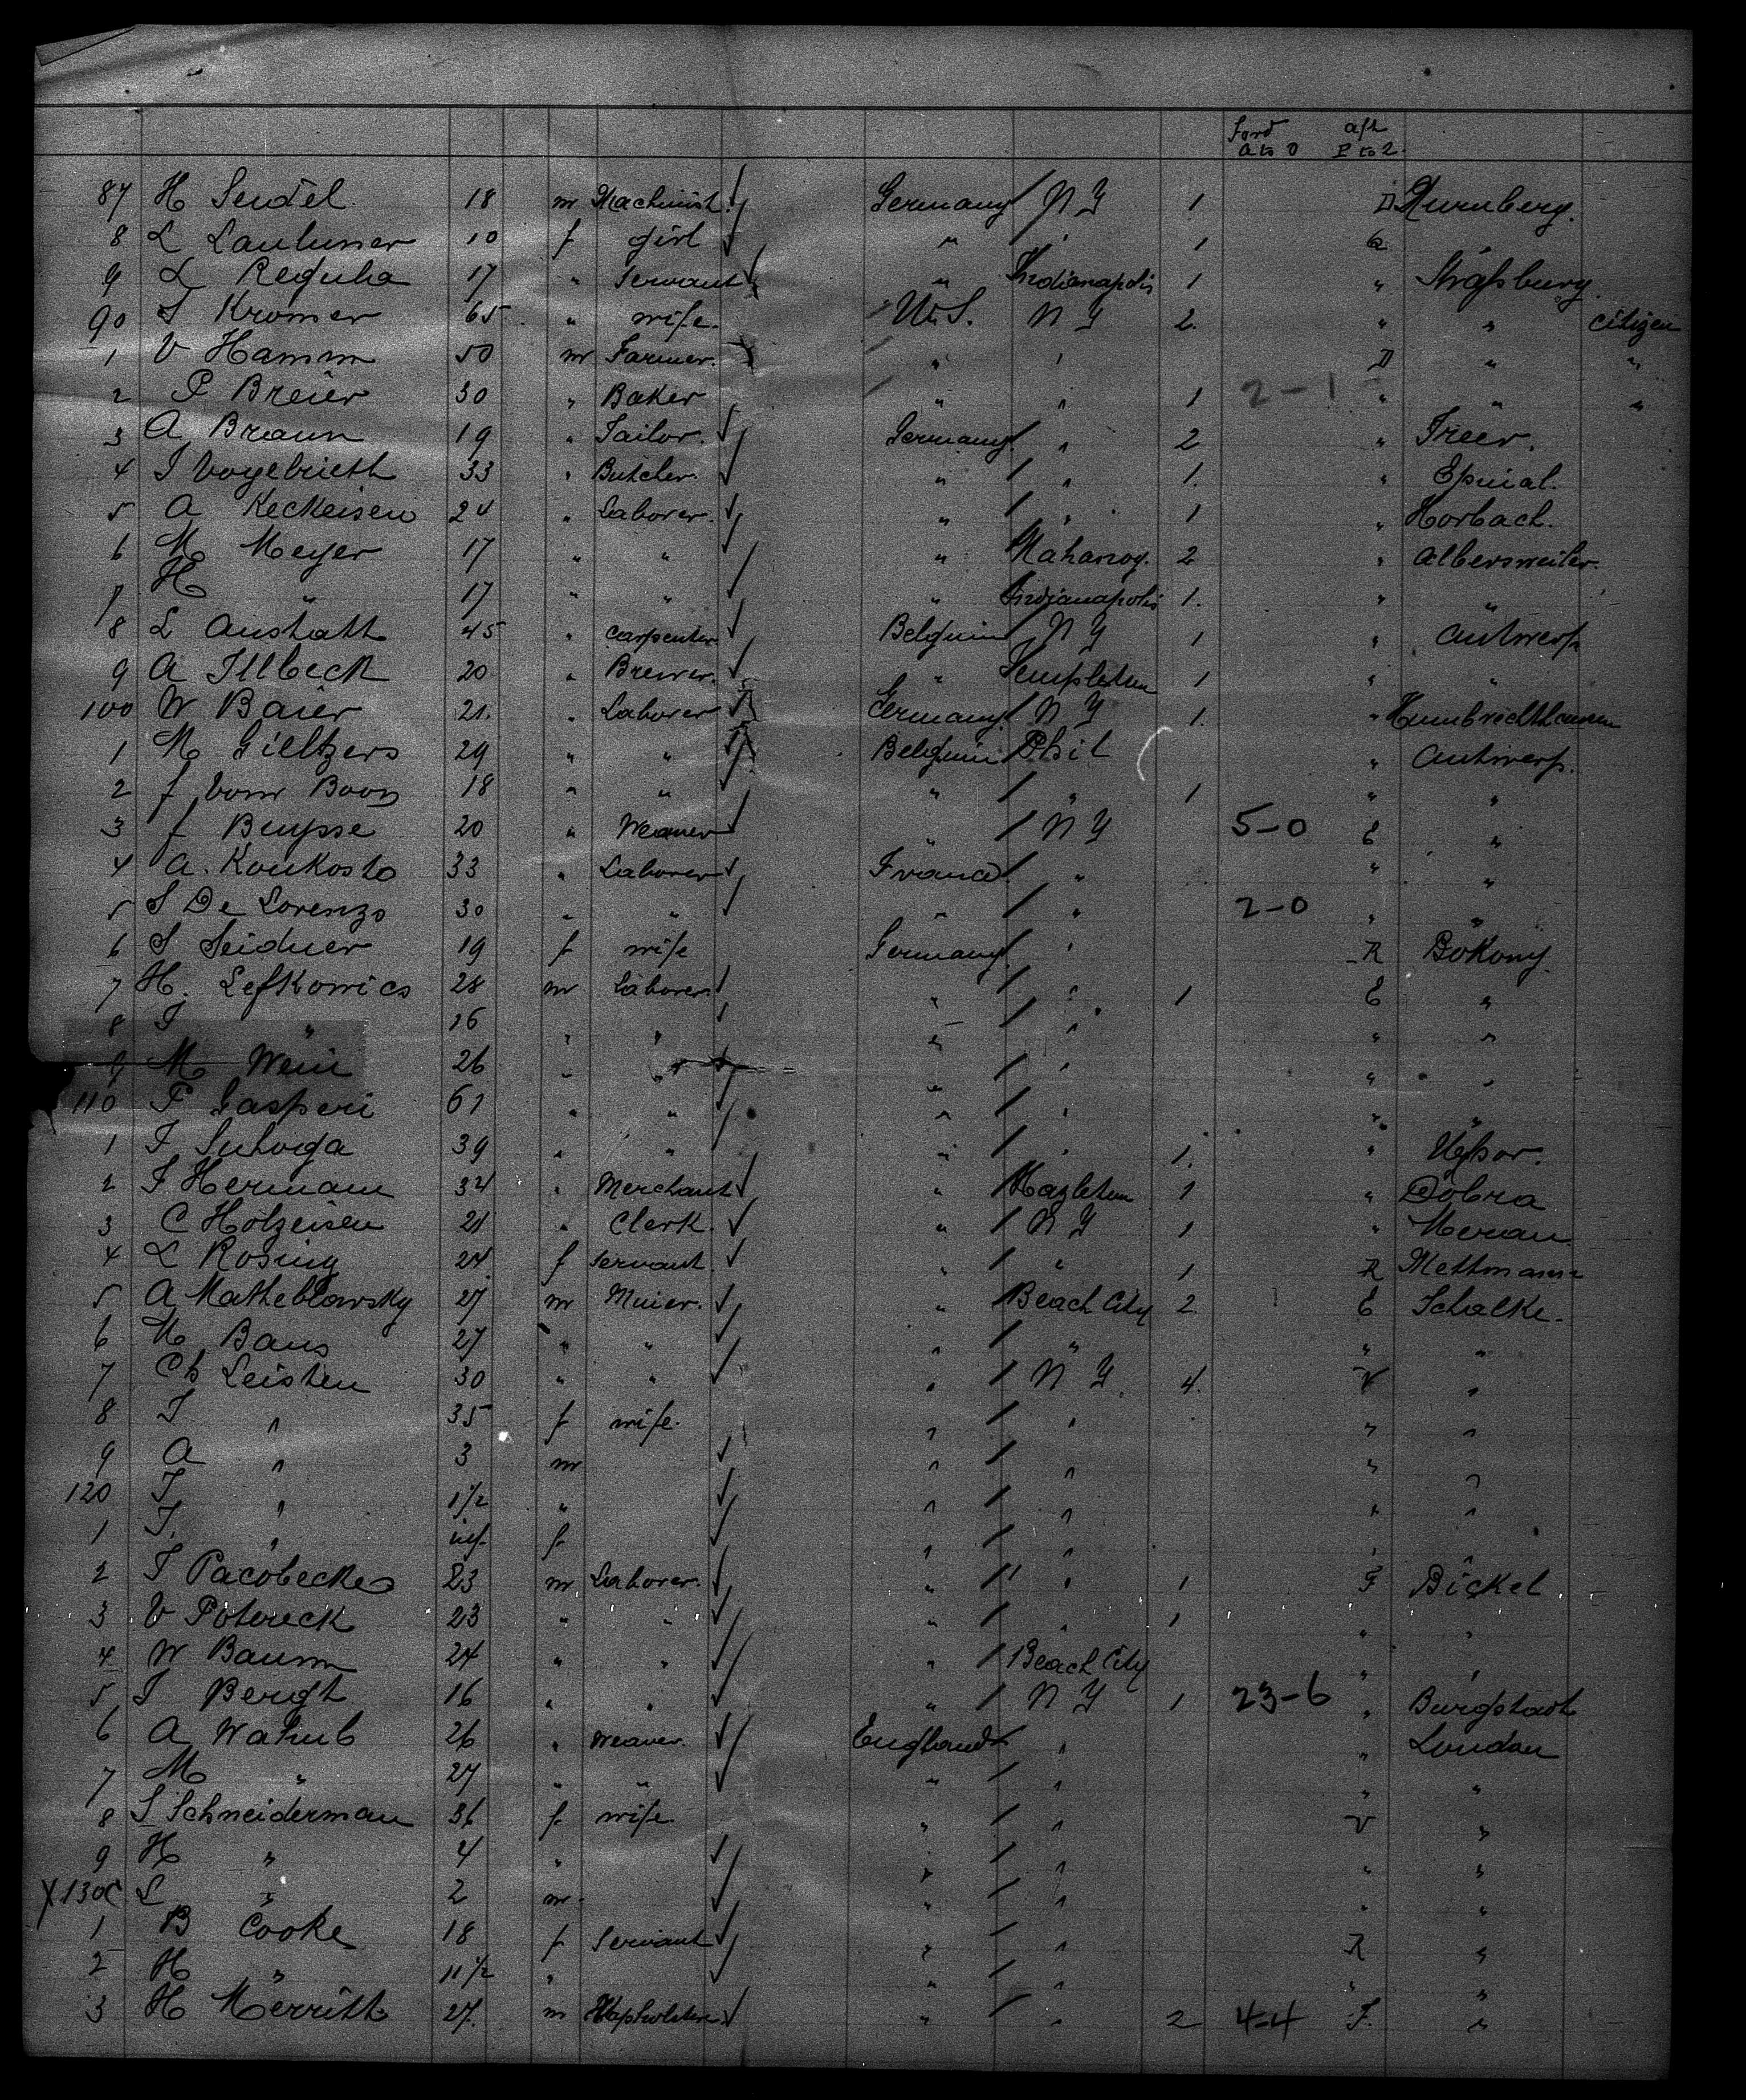 Forᵈ aft
A to O P to Z
87 H Seidel 18 m Machinist Germany N Y 1 D Nurnberg.
8 L 10 f girl " ' 1 G
9 L Regula 17 " Servant " Indianapolis 1 " Straßburg
90 S Kromer 65 " wife. U.S. N Y 2 " " citizen
1 V Hamm 50 m Farmer. " ' D " "
2 P Breier 30 " Baker " " 1 2-1 " " "
3 A Braun 19 " Tailor. Germany " 2 " Treer.
4 J Vogelrieth 33 " Butcher. " " 1. " Epinal.
5 A Keckeisen 24 " Laborer. " " 1 " Horbach.
6 M Meyer 17 " " " Mahanoy. 2 " Albersweiler.
7 H " 17 " " " Indianapolis 1. " "
8 L Anstatt 45 " Carpenter Belgium N Y 1 " Antwerp
9 A Illbeck 20 " Brewer. " Templeton 1 " "
100 W Baier 21. " Laborer Germany N Y 1. "
1 M Gieltzers 29 " " Belgium Phil " Antwerp.
2 f Vom Boon 18 " " " " 1 " "
3 f Buysse 20 " Weaver " N Y 5-0 E "
4 A. Koukosto 33 " Laborer France " " "
5 S De Lorenzo 30 " " " " 2-0 " "
6 S Seidner 19 f wife Germany ' R Bökony
7 H. Lefkowics 28 m Laborer " " 1 E "
8 I " 16 " " " " " "
9 M Wein 26 " " " " " "
110 P Gasperi 61 " " " " " "
1 I 39 " " " " 1. "
2 I Hermann 34 " Merchant " Hazleton 1 " Dobra
3 C Holzeisen 21 " Clerk. " N Y 1 " Meran
4 L Rosing 24 f servant. " " 1 R Mettmann
5 A Matheblowsky 27 m Miner. " Beach City 2 E Schalke.
6 M Baus 27 " " " " " "
7 Ch Leisten 30 " " " N Y 4. V "
8 J " 35 f wife. " " " "
9 A " 3 m " " " "
120 J " 1½ " " " " "
1 J. " inf. f " " " "
2 J Pacobecke 23 m Laborer. " " 1 F Bickel
3 V Potoreck 23 " " " " 1 " "
4 W Baum 24 " " " Beach City " "
5 J Bergt 16 " " " N Y 1 23-6 " Burgstadt
6 A Wahub 26 " Weaver. England " " London
7 M " 27 " " " " " "
8 S Schneiderman 36 f wife. " " V "
9 H " 4 " " " " "
X130C L " 2 m. " " " "
1 B Cooke 18 f Servant " " R "
2 H " 11½ " " " " "
3 H Merritt 27. m " " 2 4-4 F. "